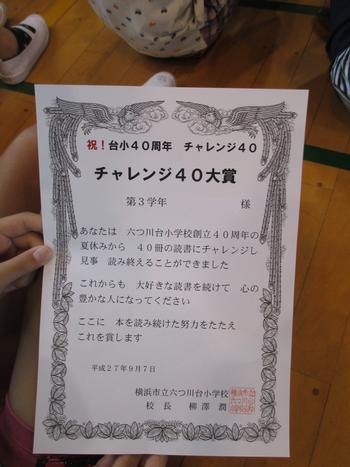 祝！台小４０周年　チャレンジ４０
チャレンジ４０大賞
第３学年　　　　　　様
あなたは　六つ川台小学校創立４０周年の
夏休みから　４０冊の読書にチャレンジし
見事　読み終えることができました
これからも　大好きな読書を続けて　心の
豊かな人になってください
ここに　本を読み続けた努力をたたえ
これを賞します
平成２７年９月７日
横浜市立六つ川台小学校
校　長　　柳　澤　　潤